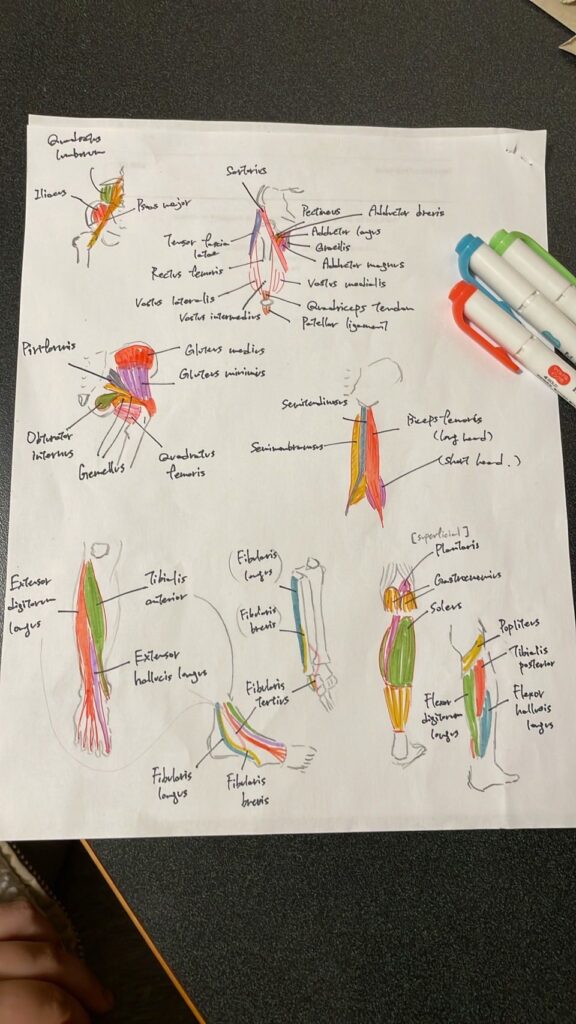 Quadratus
lumborum
Iliacus
Psoas major
Sartorius
Pectineus
Adductor brevis
Adductor longus
Gracilis
Adductor magnus
Tensor fascia
latae
Rectus femoris
Vastus lateralis
Vastus intermedius
Vastus medialis
Quadriceps tendon
Patellar ligament
Piriformis
Gluteus medius
Gluteus minimus
Obturator
internus
Gemellus
Quadratus
femoris
Semitendinosus
Semimembranosus
Biceps femoris
(long head)
(short head.)
Extensor
digitorum
longus
Tibialis
anterior
Extensor
hallucis longus
(Fibularis
longus)
(Fibularis
brevis)
Fibularis
tertius
Fibularis
longus
Fibularis
brevis
[superficial]
Plantaris
Gastrocnemius
Soleus
Popliteus
Tibialis
posterior
Flexor
digitorum
longus
Flexor
hallucis
longus